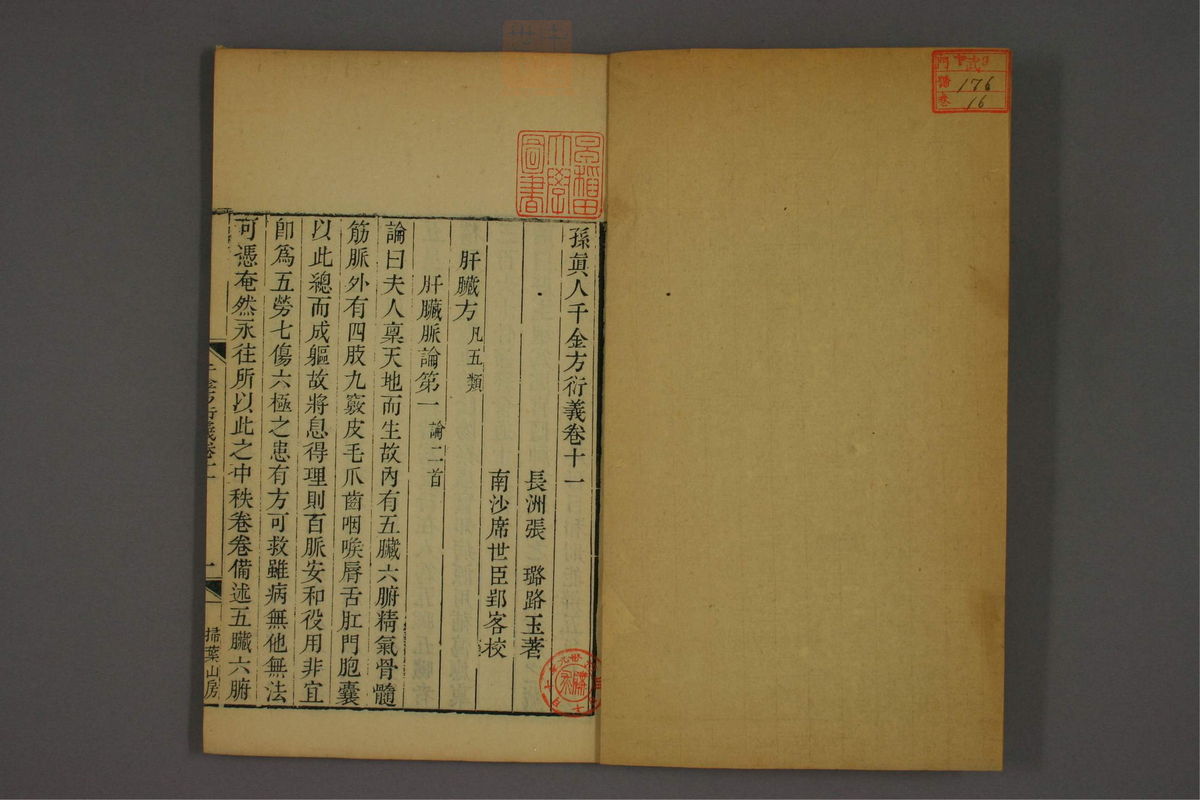 門 醫
176
卷 16
早稲田
大學
圖書
孫眞人千金方衍義卷十一
長洲張 璐路玉著
南沙席世臣郢客校
肝臟方凡五類
肝臟脈論第一論二首
論曰夫人稟天地而生故內有五臟六腑精氣骨髓
筋脈外有四肢九竅皮毛爪齒咽喉脣舌肛門胞囊
以此總而成軀故將息得理則百脈安和役用非宜
卽爲五勞七傷六極之患有方可救雖病無他無法
可憑奄然永往所以此之中秩卷卷備述五臟六腑
千金方衍義卷十一
一
掃葉山房